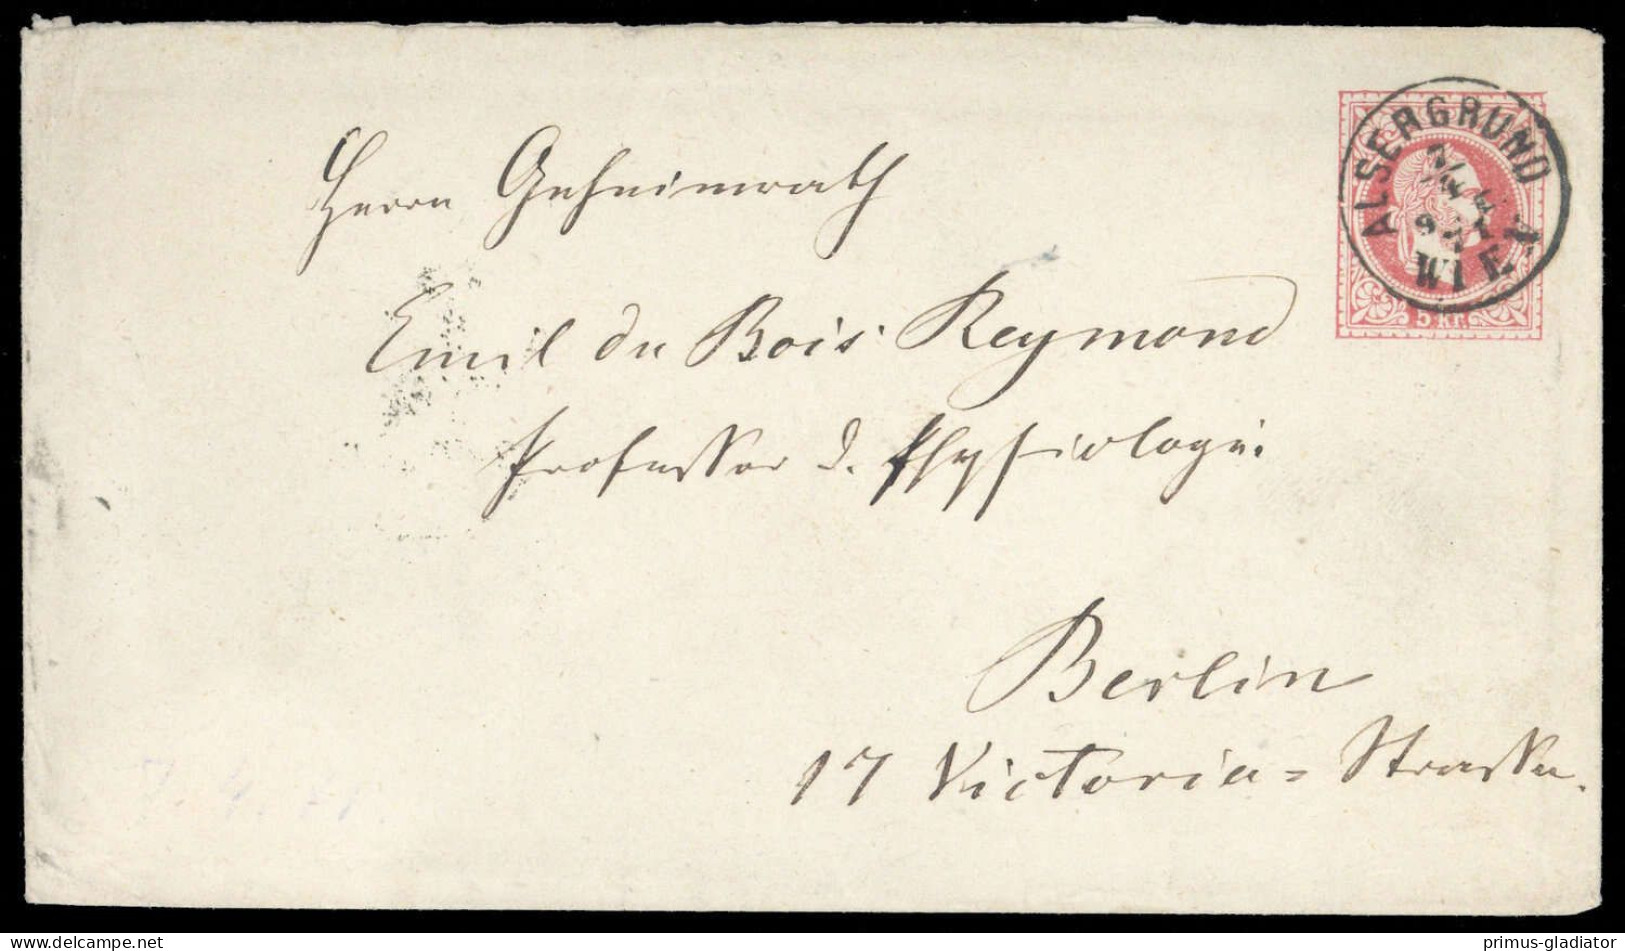 Herrn Geheimrath
Emil du Bois Reymond
Professor d. Physiologie.
Berlin
17 Victoria = Strasse.
ALSERGRUND
WIEN
5 Kr.
delcampe.net
primus-gladiator